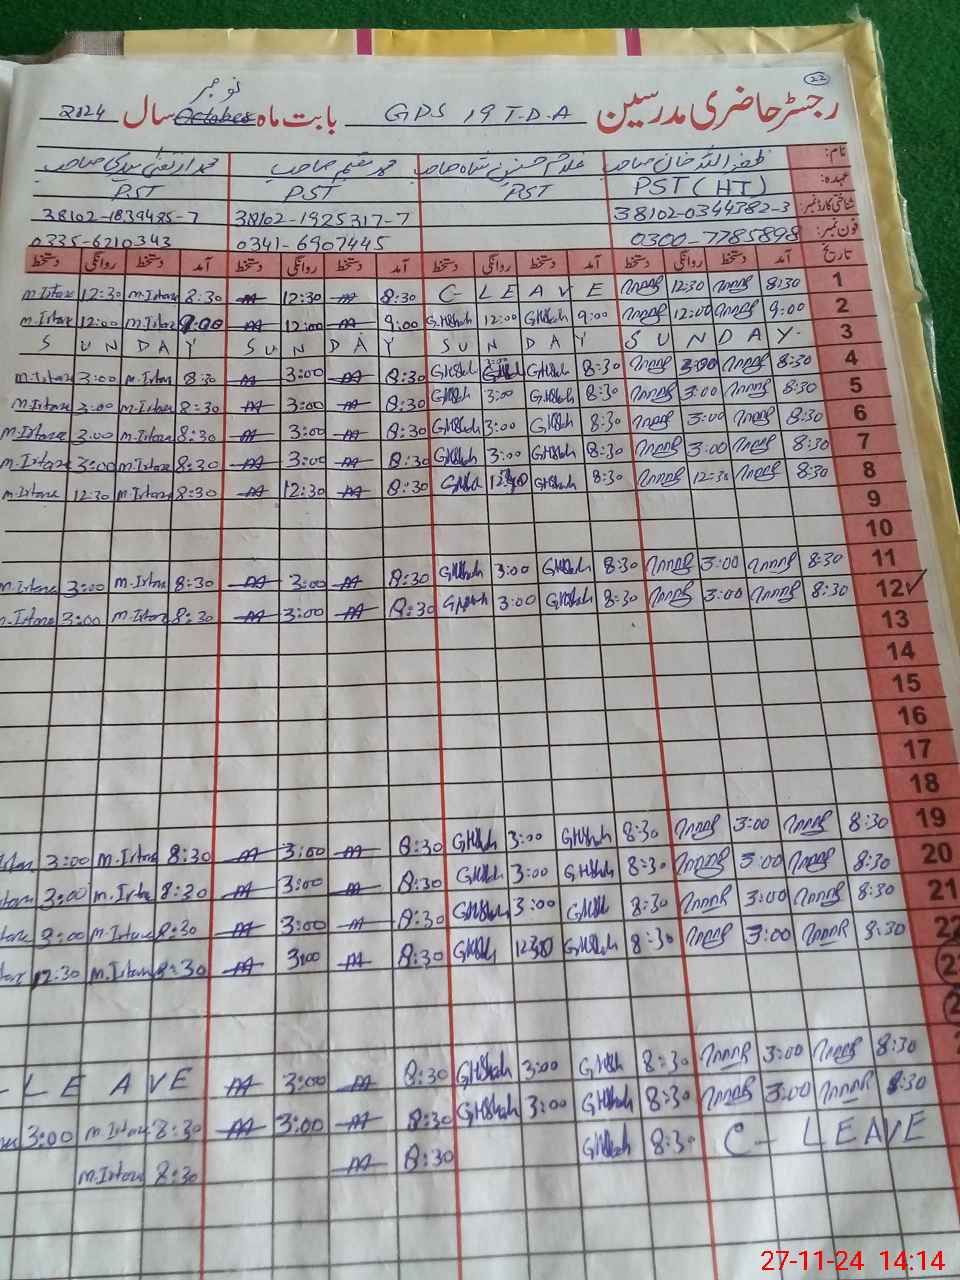 22
رجسٹر حاضری مدرسین GPS 19 T.D.A بابت ماہ October نومبر سال 2024
نام: ظفر اللہ خان صاحب غلام حسنین شاہ صاحب محمد مقیم صاحب
عہدہ: PST (HT) PST PST PST
شناختی کارڈ نمبر: 38102-0344382-3 38102-1925317-7 38102-1839485-7
فون نمبر: 0300-7785898 0341-6907445 0335-6210343
تاریخ آمد دستخط روانگی دستخط آمد دستخط روانگی دستخط آمد دستخط روانگی دستخط آمد دستخط روانگی دستخط
1 8:30 12:30 C-LEAVE 8:30 12:30 8:30 m.Irtaza 12:30 m.Irtaza
2 9:00 12:00 9:00 GHShah 12:00 GHShah 9:00 12:00 9:00 m.Irtaza 12:00 m.Irtaza
3 SUNDAY SUNDAY SUNDAY SUNDAY
4 8:30 3:00 8:30 GHShah 3:00 GHShah 8:30 3:00 8:30 m.Irtaza 3:00 m.Irtaza
5 8:30 3:00 8:30 GHShah 3:00 GHShah 8:30 3:00 8:30 m.Irtaza 3:00 m.Irtaza
6 8:30 3:00 8:30 GHShah 3:00 GHShah 8:30 3:00 8:30 m.Irtaza 3:00 m.Irtaza
7 8:30 3:00 8:30 GHShah 3:00 GHShah 8:30 3:00 8:30 m.Irtaza 3:00 m.Irtaza
8 8:30 12:30 8:30 GHShah 12:30 GHShah 8:30 12:30 8:30 m.Irtaza 12:30 m.Irtaza
9
10
11 8:30 3:00 8:30 GHShah 3:00 GHShah 8:30 3:00 8:30 m.Irtaza 3:00 m.Irtaza
12 8:30 3:00 8:30 GHShah 3:00 GHShah 8:30 3:00 8:30 m.Irtaza 3:00 m.Irtaza
13
14
15
16
17
18
19 8:30 3:00 8:30 GHShah 3:00 GHShah 8:30 3:00 8:30 m.Irtaza 3:00
20 8:30 3:00 8:30 GHShah 3:00 GHShah 8:30 3:00 8:30 m.Irtaza 3:00
21 8:30 3:00 8:30 GHShah 3:00 GHShah 8:30 3:00 8:30 m.Irtaza 3:00
22 8:30 3:00 8:30 GHShah 12:30 GHShah 8:30 3:00 8:30 m.Irtaza 12:30
8:30 3:00 8:30 GHShah 3:00 GHShah 8:30 3:00 -LEAVE
8:30 3:00 8:30 GHShah 3:00 GHShah 8:30 3:00 8:30 m.Irtaza 3:00
C-LEAVE 8:30 GHShah 8:30 8:30 m.Irtaza
27-11-24 14:14